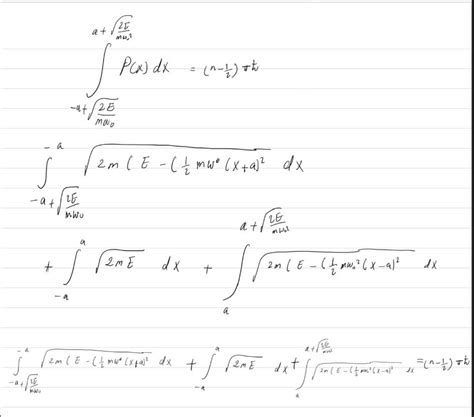 ∫_{-a+√(2E/mω₀)}^{a+√(2E/mω₀²)} P(x) dx = (n-½) πħ
∫_{-a+√(2E/mω₀)}^{-a} √(2m(E-(½mω°(x+a)²) dx
+ ∫_{-a}^{a} √(2mE) dx + ∫_{a}^{a+√(2E/mω₀²)} √(2m(E-(½mω₀²(x-a)²) dx
∫_{-a+√(2E/mω₀)}^{-a} √(2m(E-(½mω°(x+a)²) dx + ∫_{-a}^{a} √(2mE) dx + ∫_{a}^{a+√(2E/mω)} √(2m(E-(½mω₀²(x-a)²) dx = (n-½) πħ